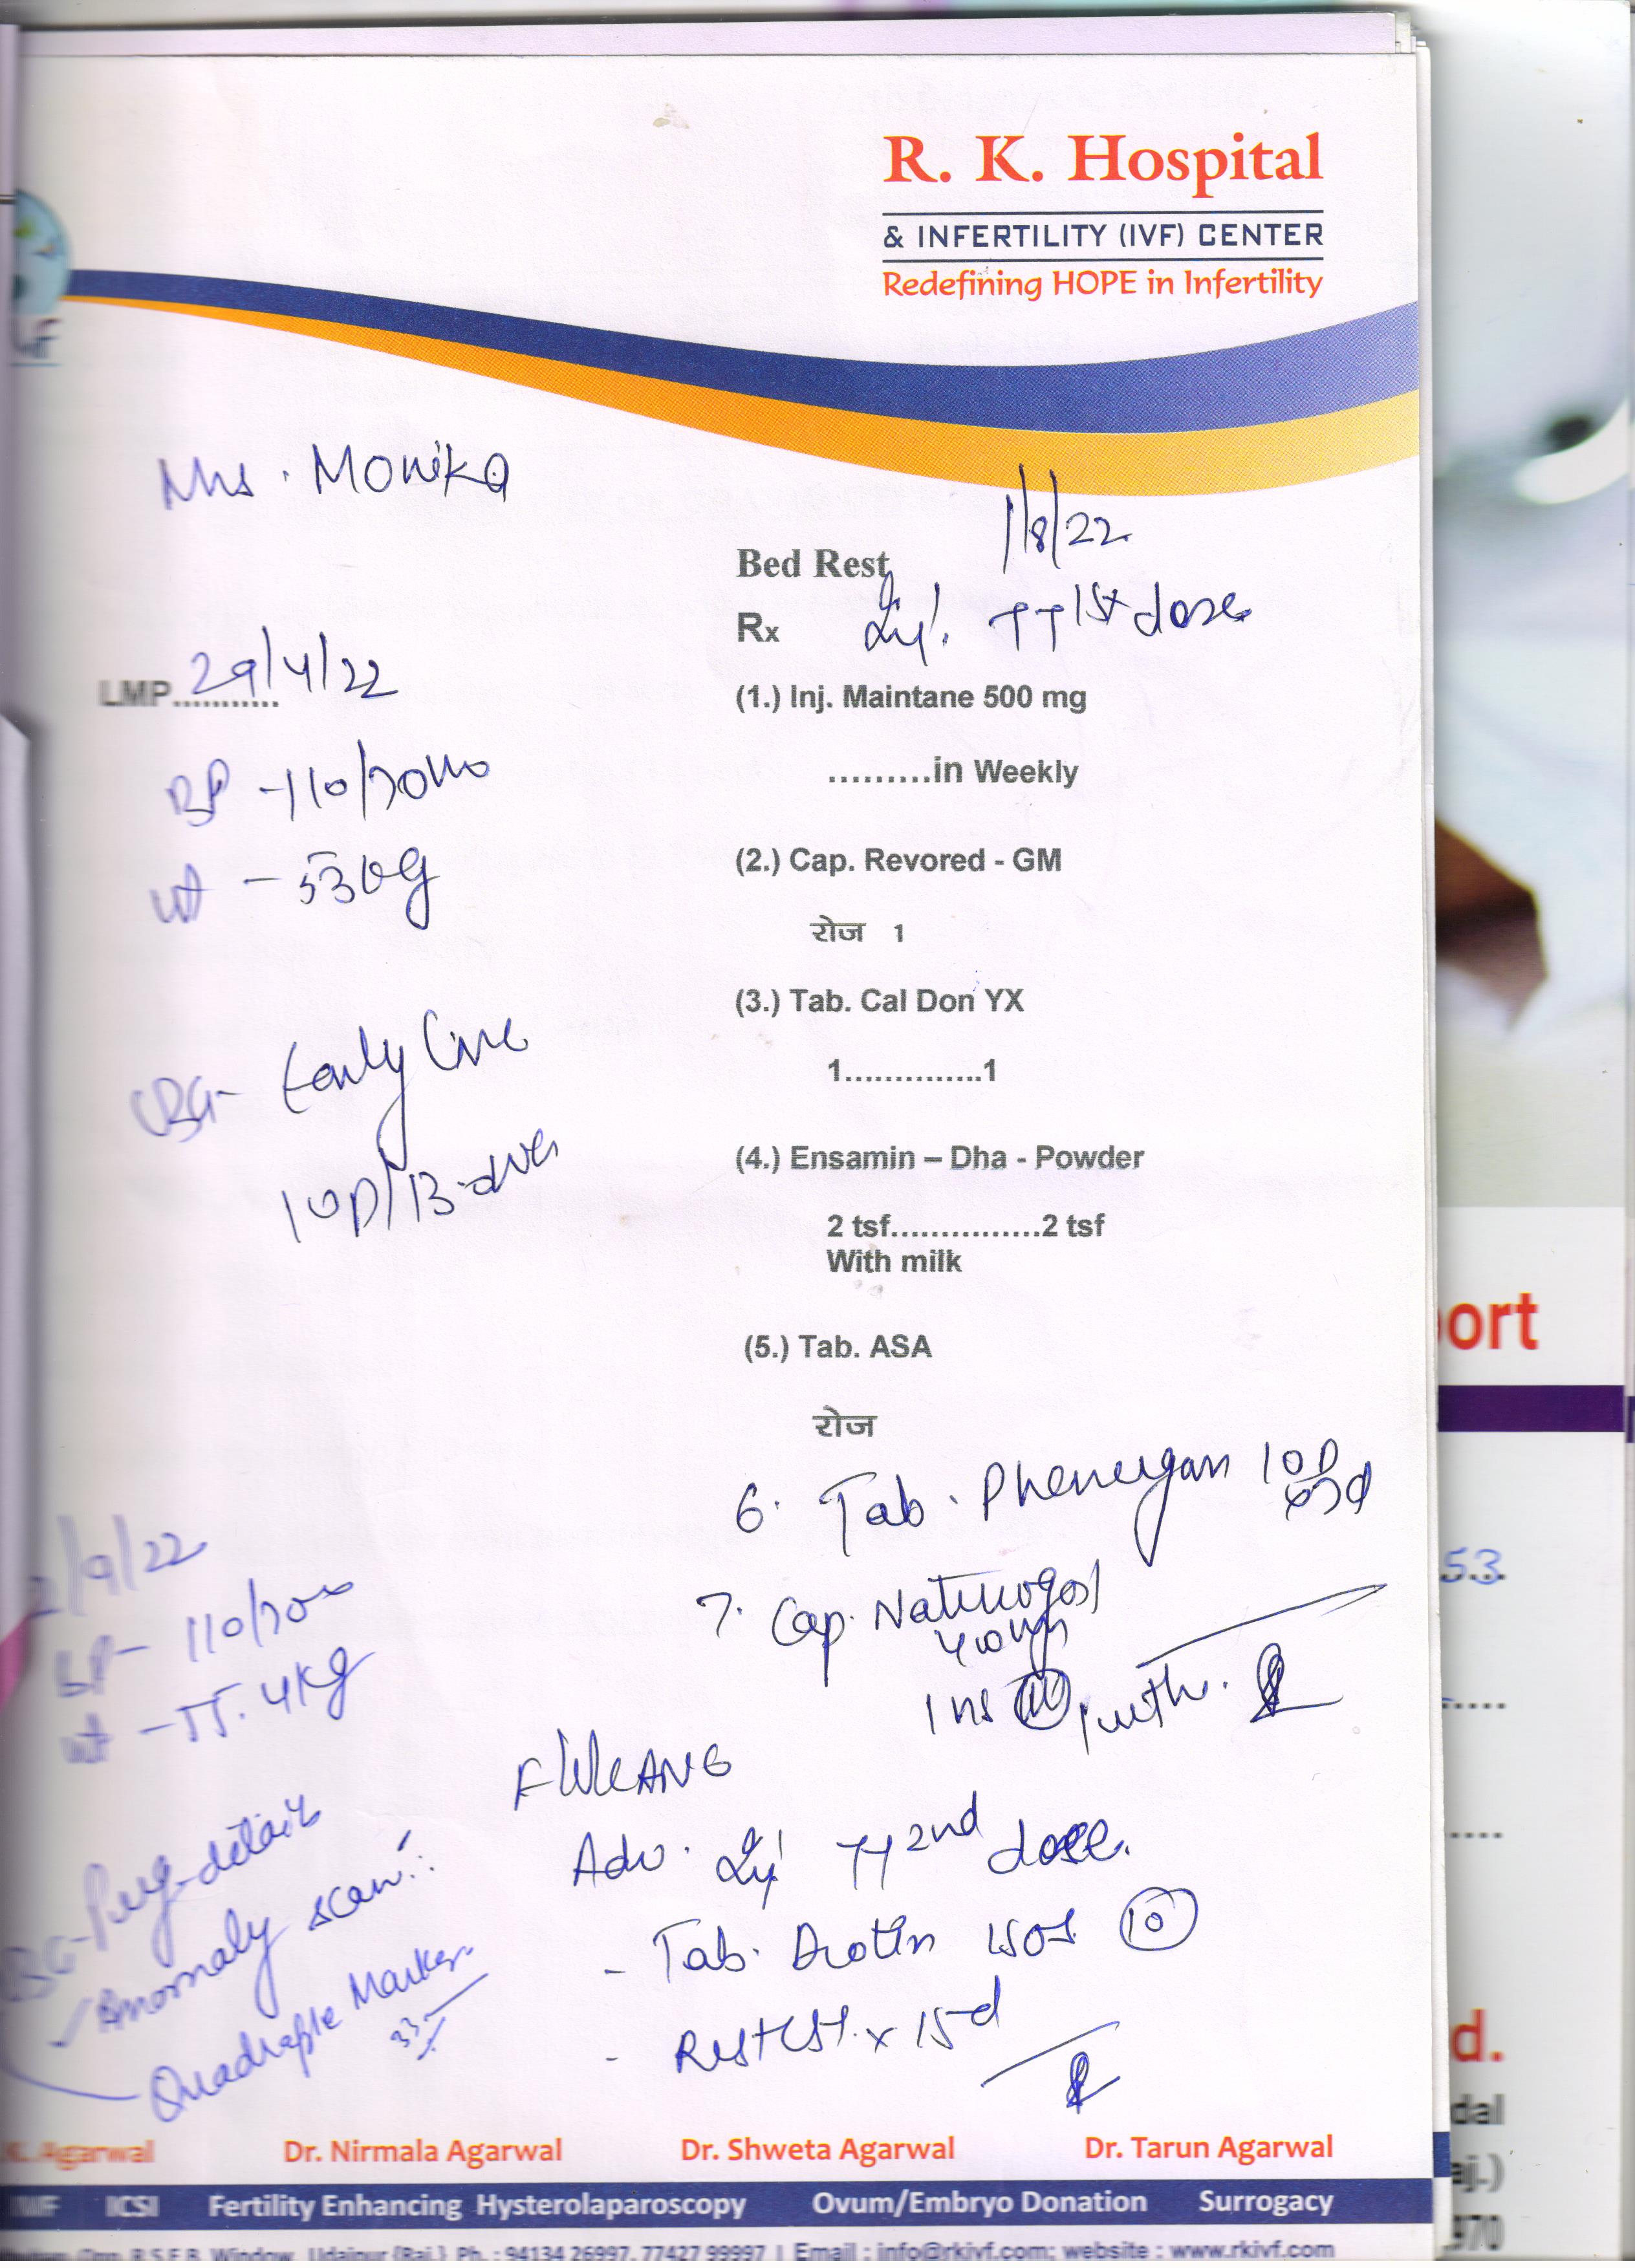 R. K. Hospital
& INFERTILITY (IVF) CENTER
Redefining HOPE in Infertility
Mrs. Monika
1/8/22
Bed Rest
Rx Inj. TT 1st dose
LMP........... 29/4/22
(1.) Inj. Maintane 500 mg
.........in Weekly
BP - 110/70
wt - 53kg
(2.) Cap. Revored - GM
रोज 1
(3.) Tab. Cal Don YX
1..............1
USG - Early Live
IUP/13
(4.) Ensamin – Dha - Powder
2 tsf...............2 tsf
With milk
(5.) Tab. ASA
रोज
6. Tab. Phenergan 10D
7. Cap. Naturogest
400mg
/9/22
BP - 110/70
wt - 55.4kg
Adv. Inj TT 2nd dose.
- Tab. Drotin 10
- x 15d
Preg. details
Anomaly scan
Quadraple Marker
Agarwal
Dr. Nirmala Agarwal
Dr. Shweta Agarwal
Dr. Tarun Agarwal
IVF ICSI Fertility Enhancing Hysterolaparoscopy Ovum/Embryo Donation Surrogacy
Opp. R.S.E.B. Window, Udaipur (Raj.) Ph. : 94134 26997, 77427 99997 | Email : info@rkivf.com; website : www.rkivf.com
ort
53
d.
dal
aj.)
970